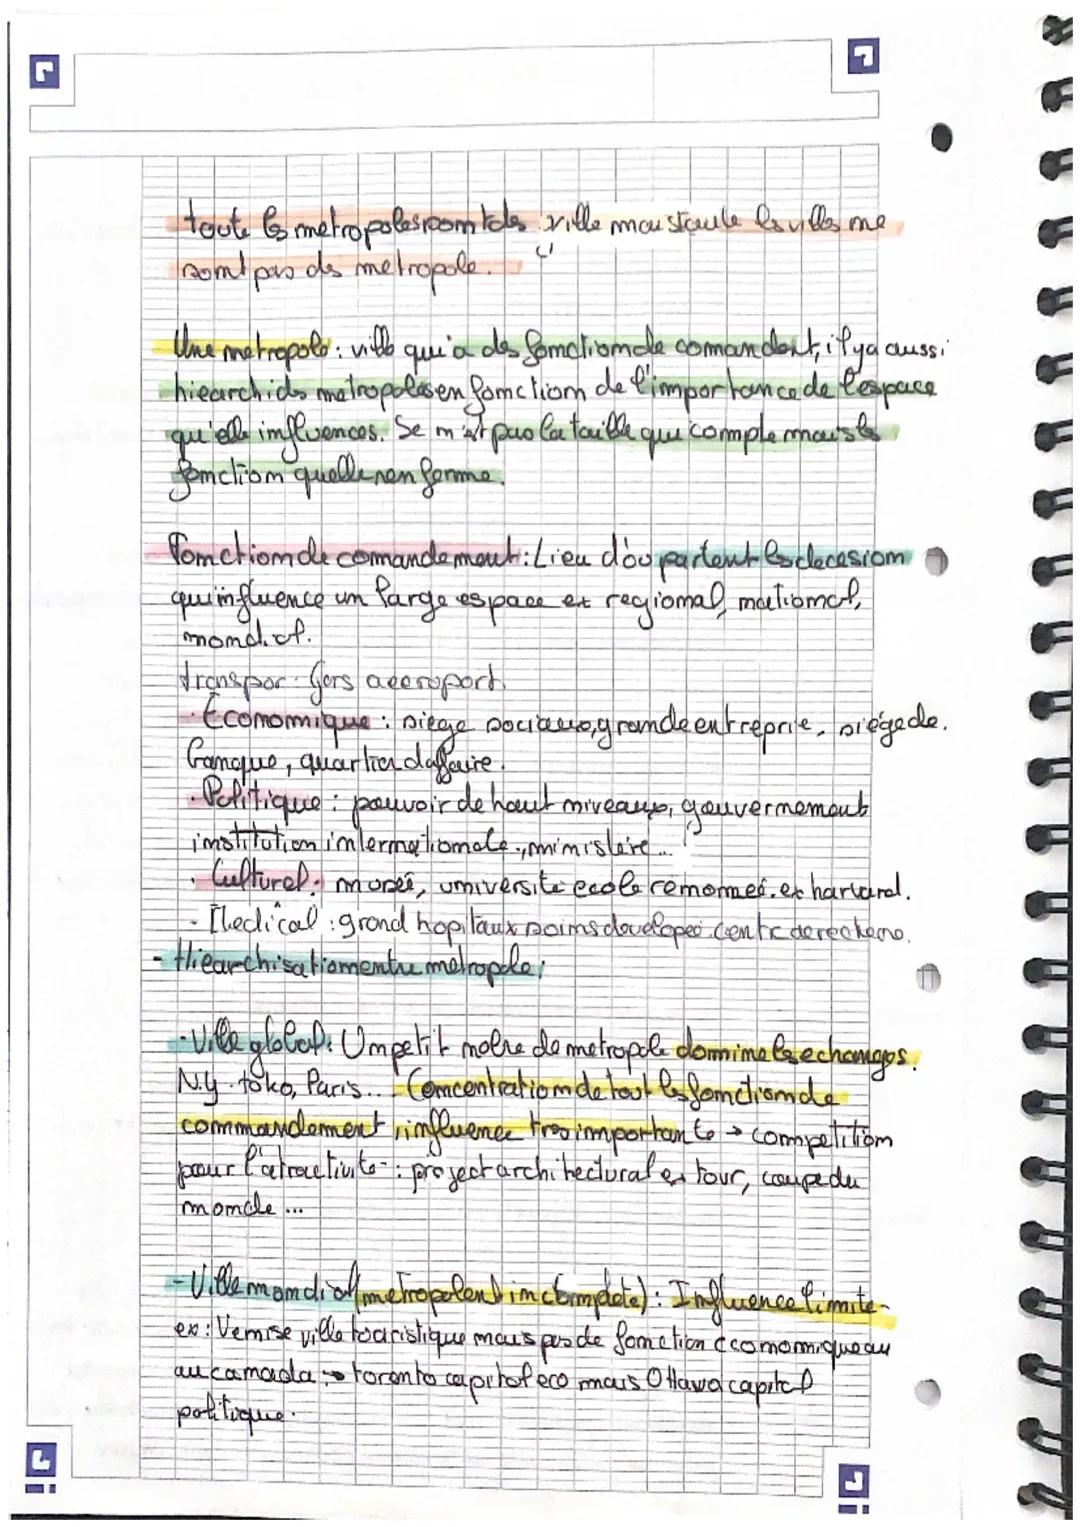 toute les metropoles sont des ville mais toute les villes ne
sont pas des metropole.
Une metropole : ville qui a des fonction de comandent, il y a aussi
hiearchi ds metropoles en fonction de l'importance de l'espace
qu'elle influences. Se n'est pas la taille qui compte mais ls
fonction quelle renferme.
Fonction de comandement : Lieu d'où partent les decesion
qui influence un large espace ex regional, national,
mondial.
transpor : Gars aeeroport.
- Economique : siège sociaux, grande entreprie, siège de
banque, quartier d'affaire.
- Politique : pouvoir de haut niveaux, gouvernement
institution internationale, ministère...
- Culturel : musée, université ecole renomeé. ex harvard.
- Medical : grand hopitaux soins developeé. centre de recherc.
- Hiearchisation entre metropole :
- Ville global : Un petit nobre de metropole domine les echanges.
N.Y. toko, Paris... Concentration de tout les fonction de
commandement, influence tres importante → competition
pour l'atractivite : project architectural ex tour, coupe du
monde ...
- Ville mondial (metropolent incomplete) : Influence limite
ex : Venise ville touristique mais pas de fonction economique ou
au canada → toronto capital eco mais Ottawa capital
politique.